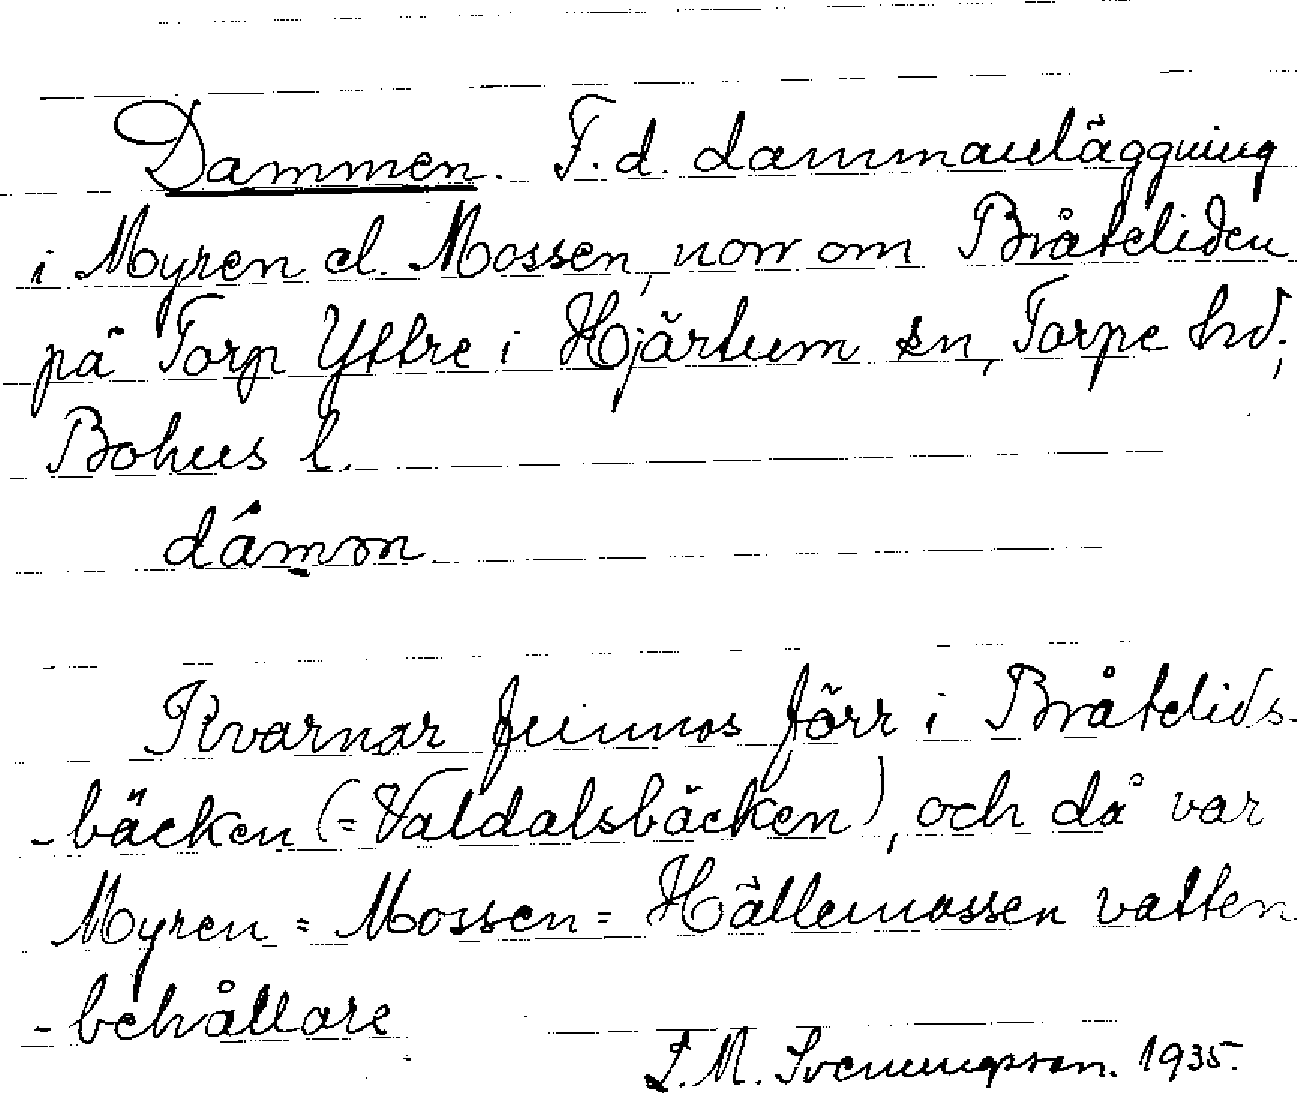 Dammen. F. d. dammanläggning
i Myren el. Mossen, norr om Bråteliden
på Torp Yttre i Hjärtum sn, Torpe hd;
Bohus l.
dámon
Kvarnar funnos förr i Bråtelids-
-bäcken (=Valdalsbäcken), och då var
Myren = Mossen = Hällemossen vatten
-behållare
F. M. Svenungsson. 1935.